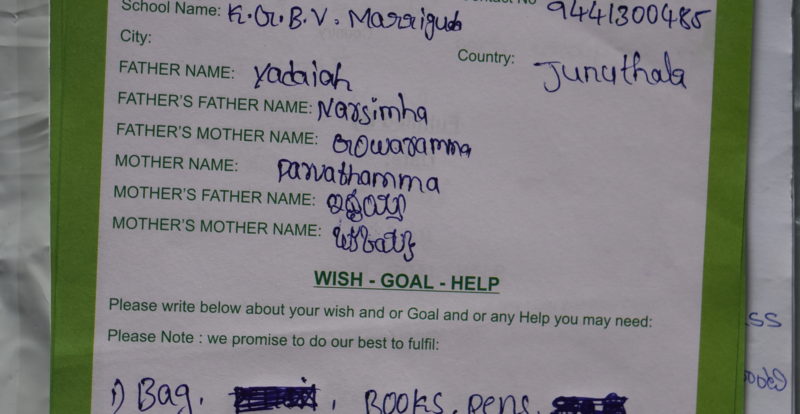 School Name: K.G.B.V. Marriguda
Contact No 9441300485
City:
Country: Junuthala
FATHER NAME: Yadaiah
FATHER'S FATHER NAME: Narsimha
FATHER'S MOTHER NAME: Gowaramma
MOTHER NAME: Parvathamma
MOTHER'S FATHER NAME:
MOTHER'S MOTHER NAME:
WISH - GOAL - HELP
Please write below about your wish and or Goal and or any Help you may need:
Please Note : we promise to do our best to fulfil:
1) Bag. , BOOKS. Pens.